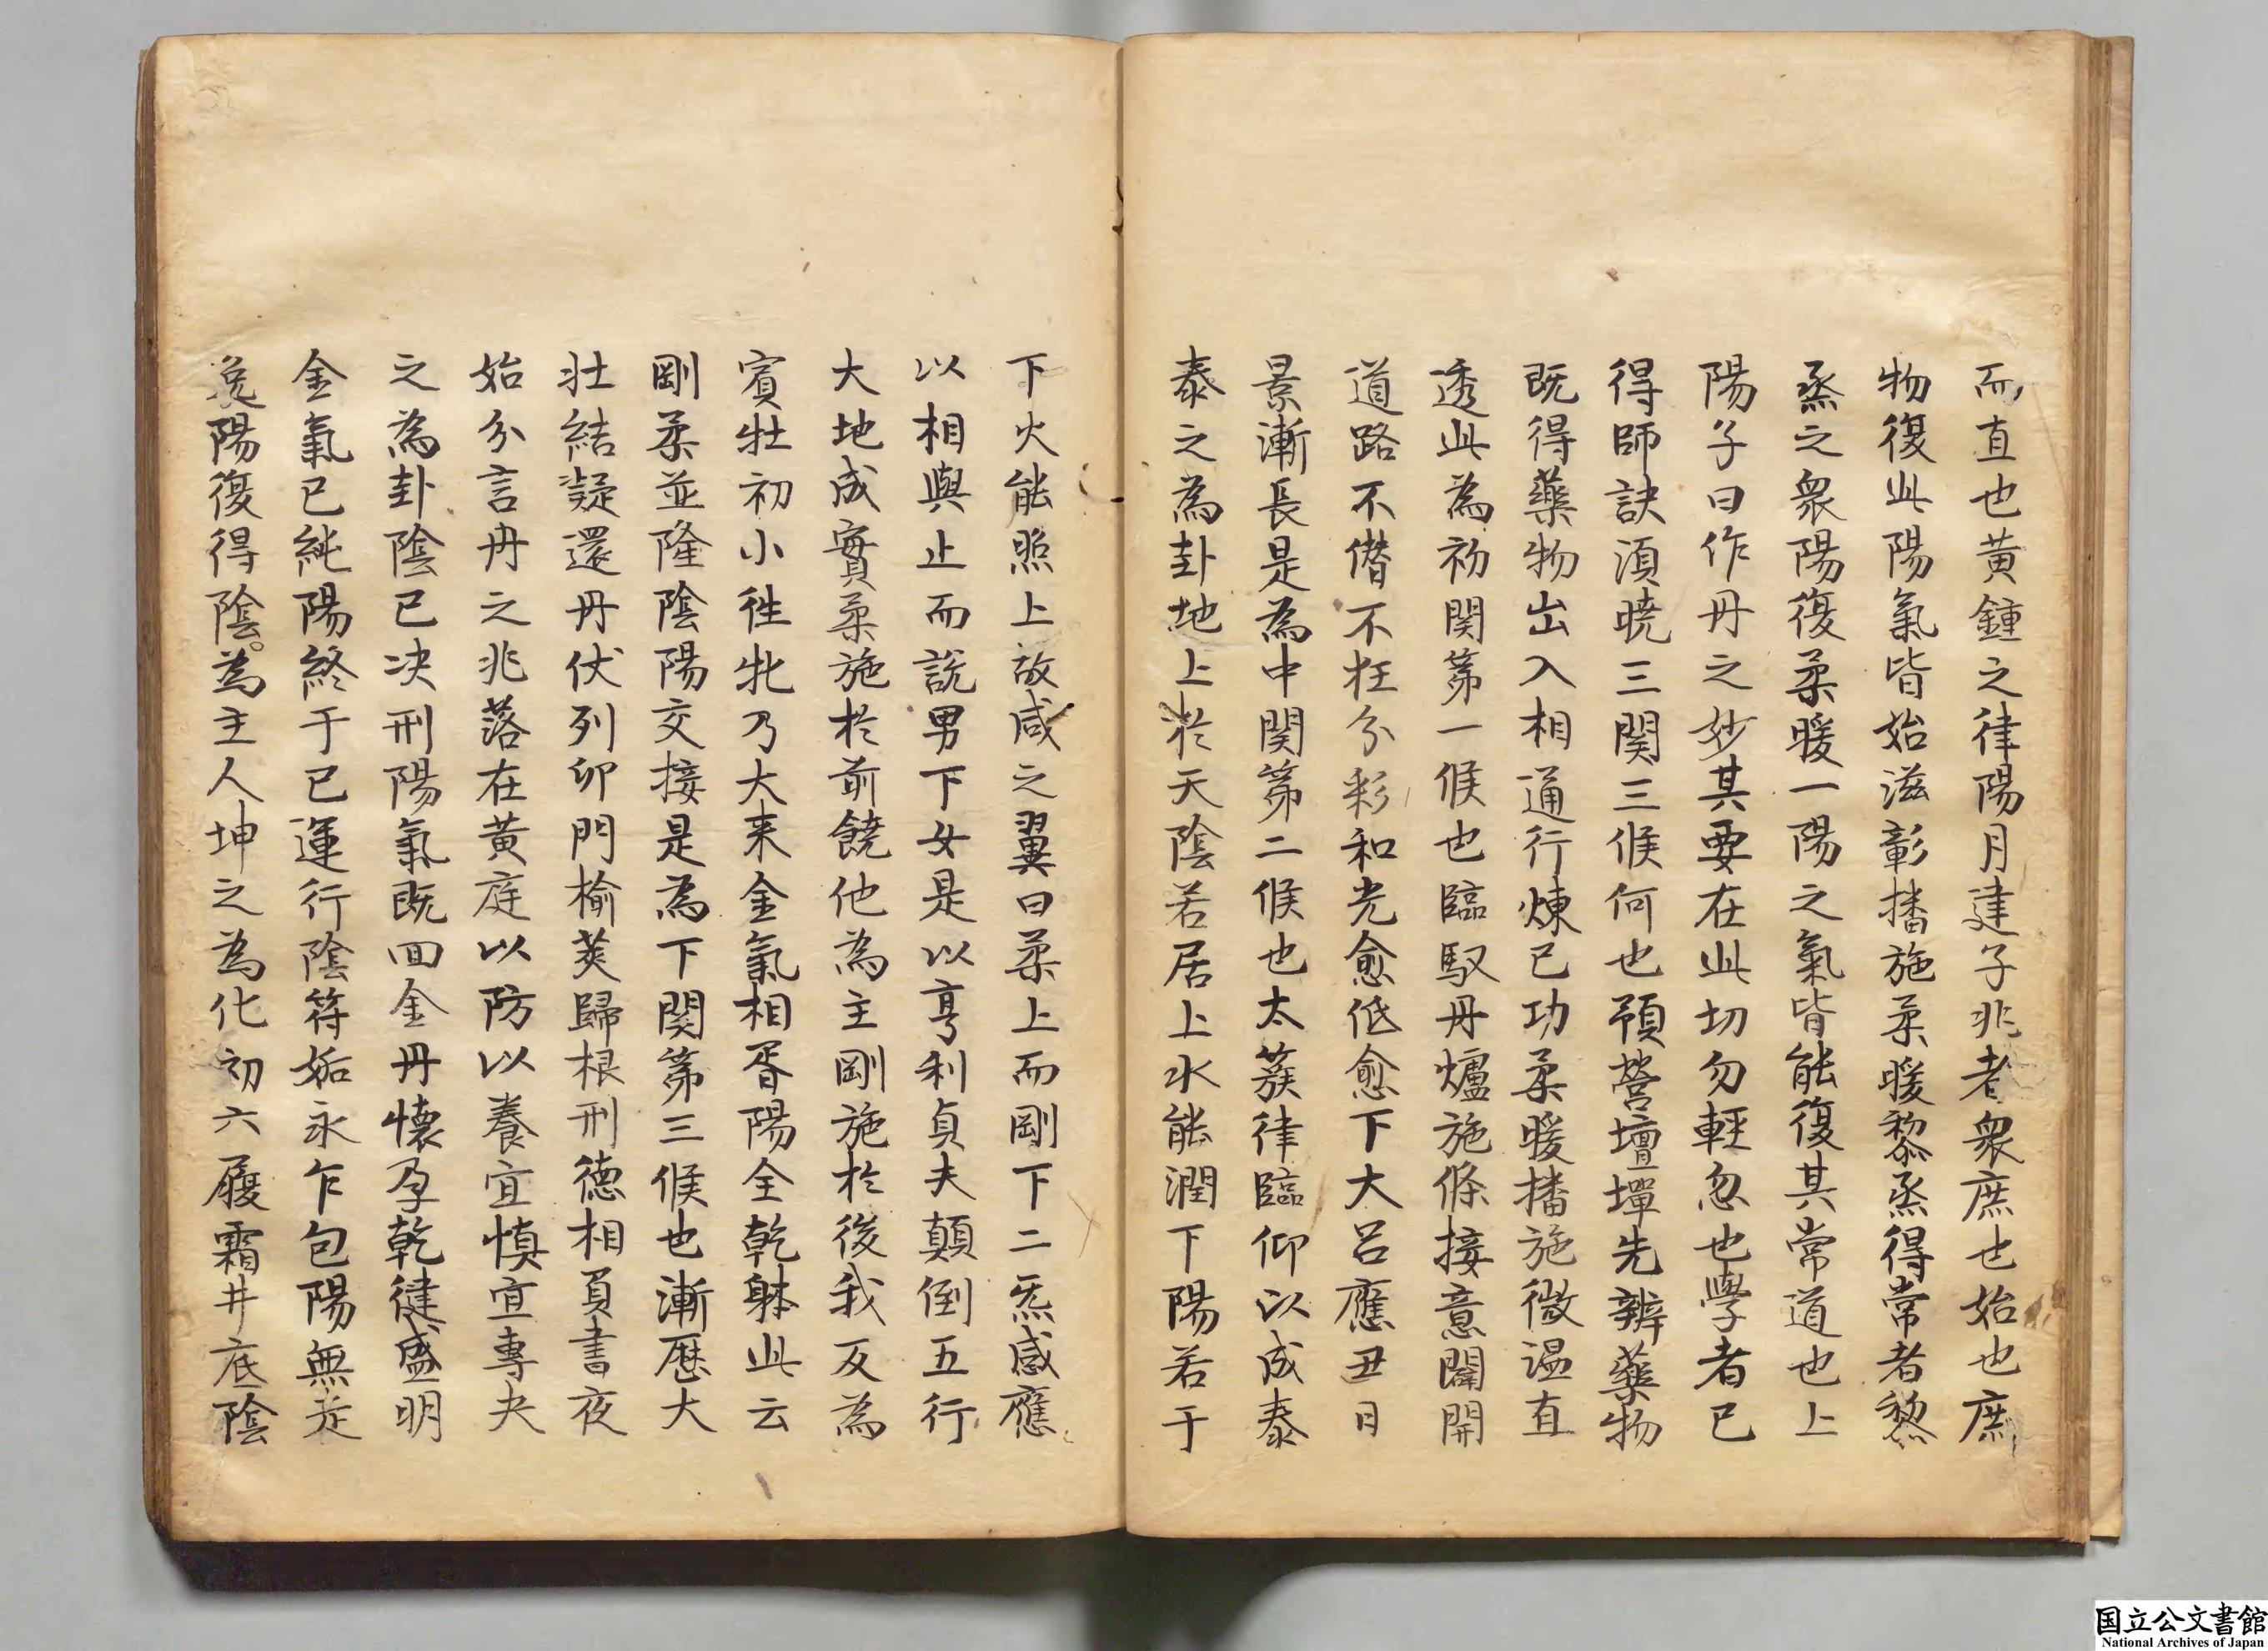 而直也黄鍾之律陽月建子兆者衆庶也始也庶
物復此陽氣皆始滋彰播施柔暖黎烝得常者黎
烝之衆陽復柔暖一陽之氣皆能復其常道也上
陽子曰作丹之妙其要在此切勿輕忽也學者已
得師訣湏暁三関三候何也預營壇墠先辨藥物
既得藥物出入相通行煉已功柔暖播施微温直
透此為初関第一候也臨馭丹爐施條接意闢開
道路不僣不枉分彩和光愈愈低愈下大吕應丑日
景漸長是為中関第二候也太蔟律臨仰以成泰
泰之為卦地上於天陰若居上水能潤下陽若于
下火能照上故咸之翼曰柔上而剛下二炁感應
以相與止而說男下女是以亨利貞夫顛倒五行
大地成寶柔施於前饒他為主剛施於後我反為
賓牡初小徃牝乃大来金氣相胥陽全乾躰此云
剛柔並隆陰陽交接是為下関第三候也漸歴大
壮結凝還丹伏列卯門榆莢歸根刑德相負書夜
始分言丹之兆落在黄庭以防以養宜慎宜專夬
之為卦陰已决刑陽氣既回金丹懐孕乾健盛明
金氣已純陽終于已運行陰符姤永乍包陽無走
逸陽復得陰為主人坤之為化初六履霜井底陰
国立公文書館
National Archives of Japan